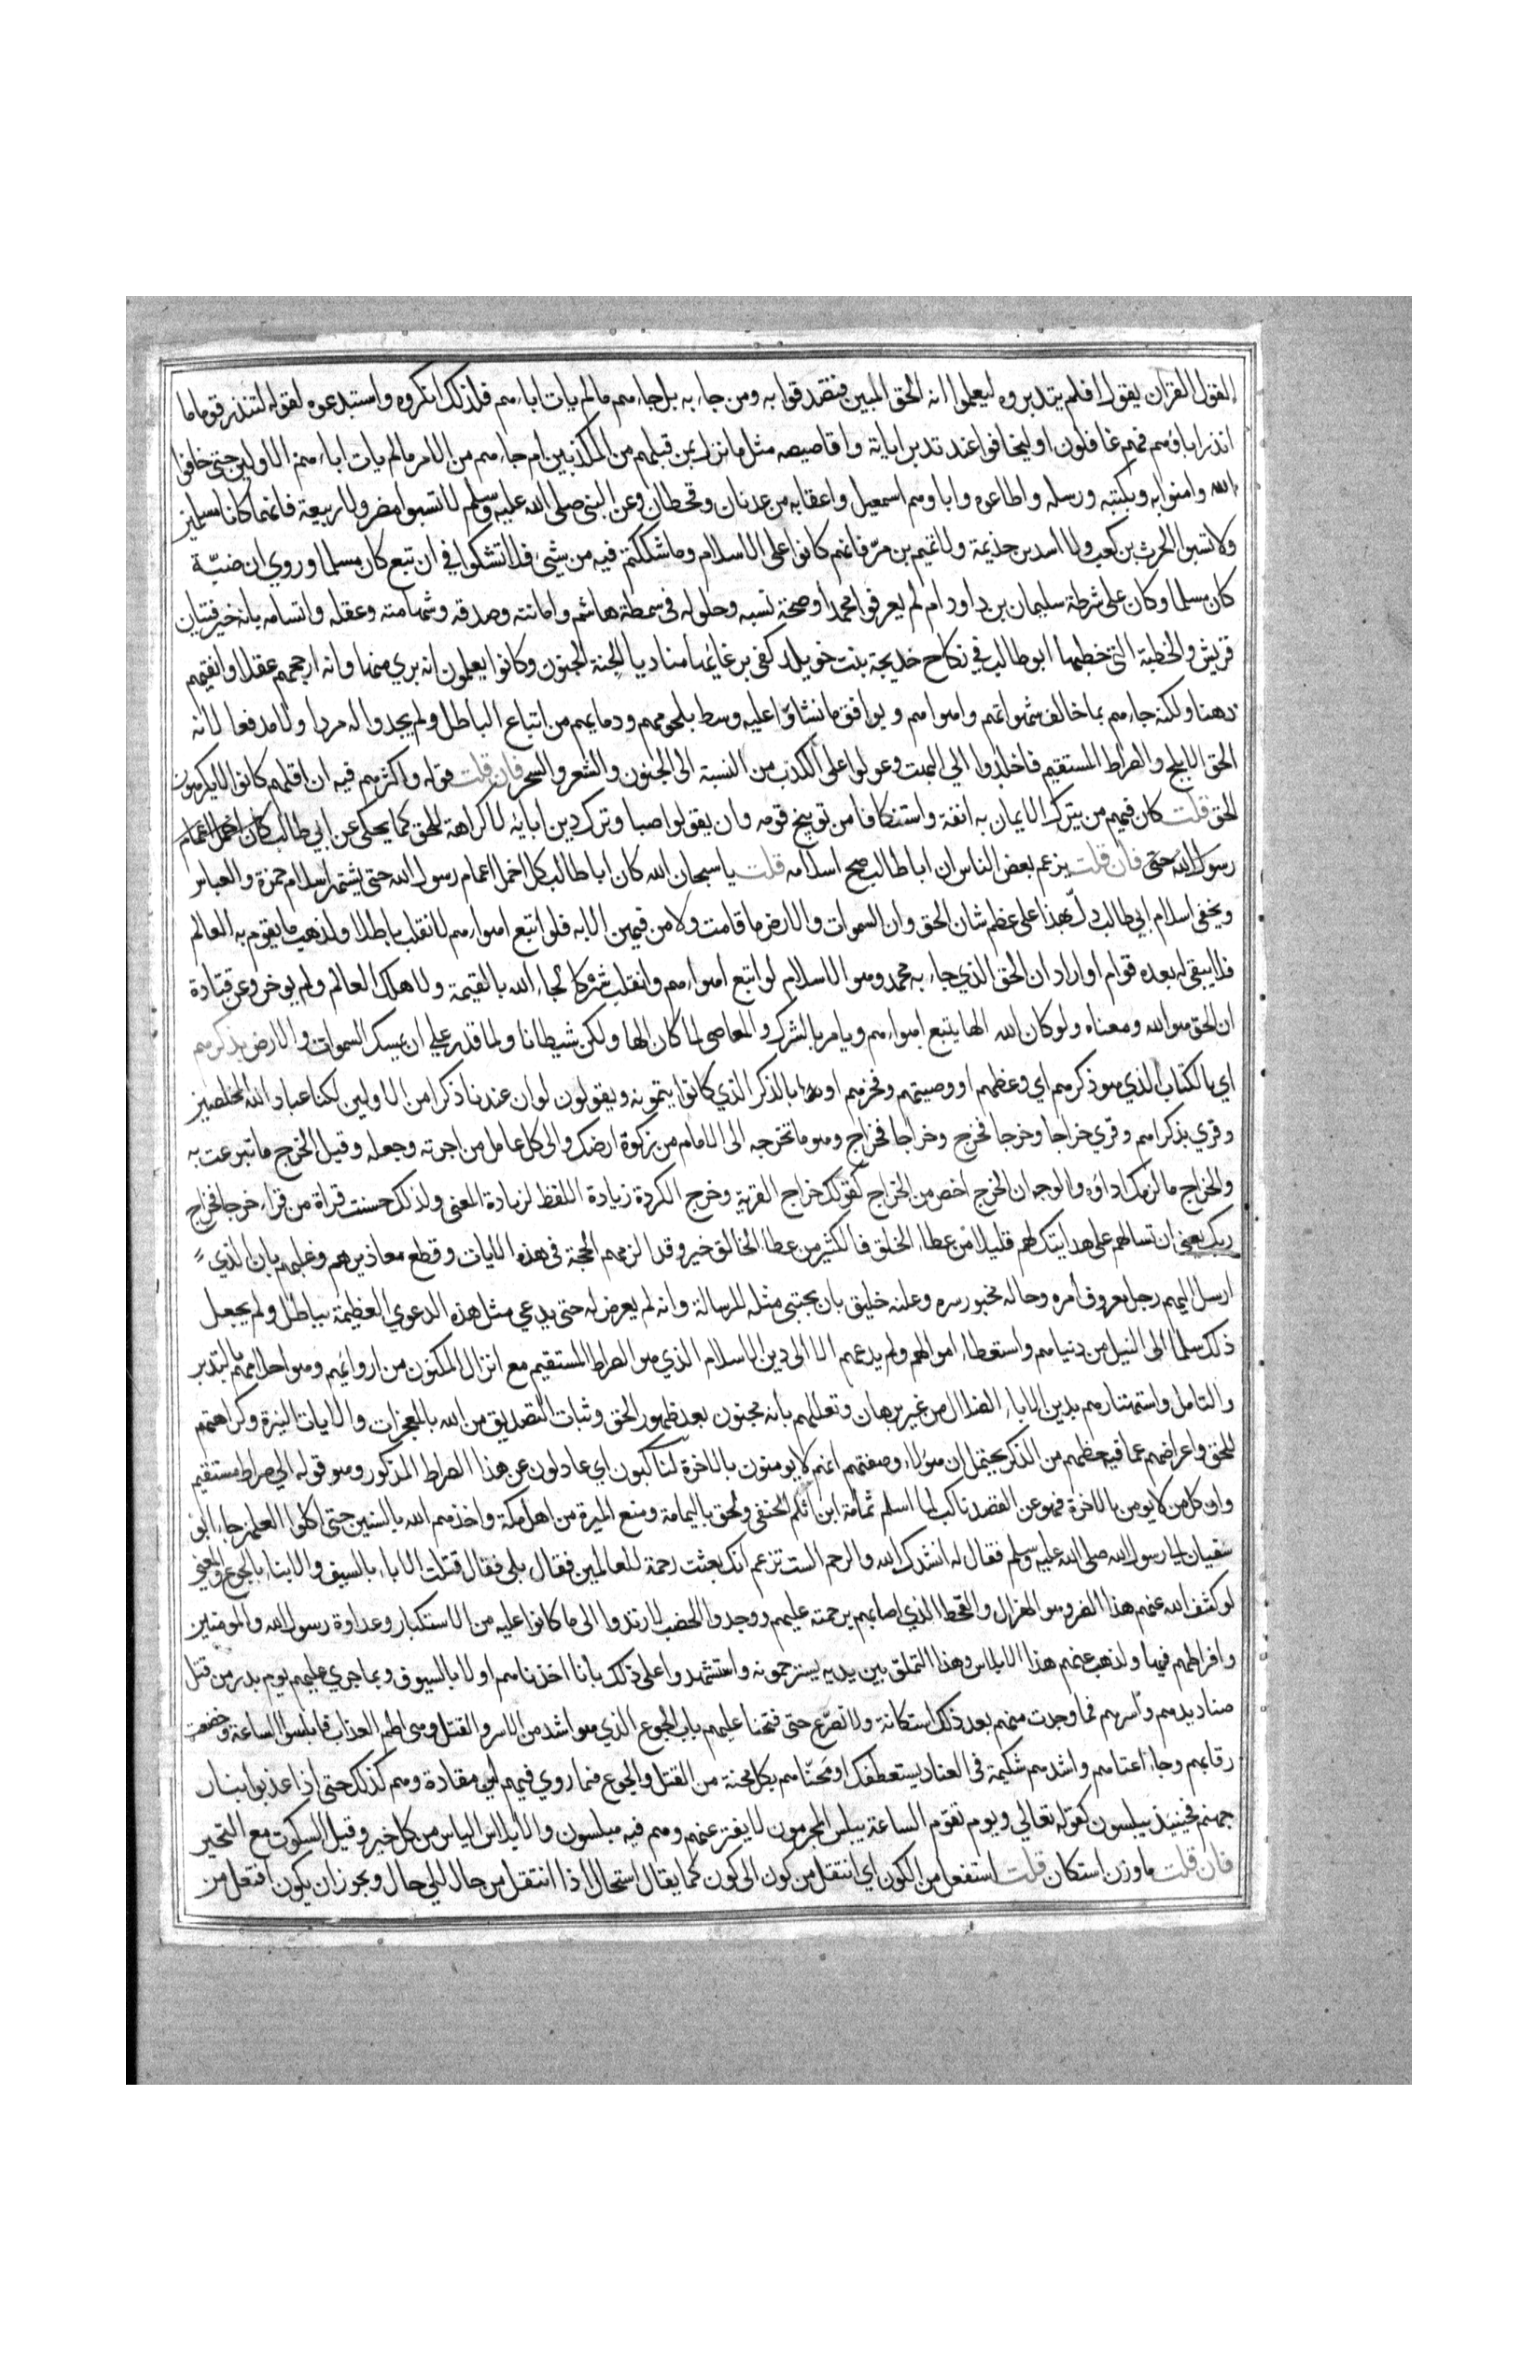 القول القرآن يقول افلم يتدبروه ليعلموا انه الحق المبين فيصدقوا به ومن جاء به بل جاءهم مالم يات اباءهم فلذلك انكروه واستبدعوه لقوله لتنذر قوما ما
انذر اباؤهم فهم غافلون او ليخافوا عند تدبر اياته واقاصيصه مثل ما نزل بمن قبلهم من المكذبين ام جاءهم من الامر مالم يات اباءهم الاولين حتى خافوا
الله وامنوا به وبكتبه ورسله واطاعوه واباوهم اسمعيل واعقابه من عدنان وقحطان وعن النبي صلى الله عليه وسلم لا تسبوا مضر ولا ربيعة فانهما كانا مسلمين
ولا تسبوا الحرث بن كعب ولا اسد بن خذيمة ولا تميم بن مر فانهم كانوا على الاسلام وما شككتم فيه من شئ فلا تشكوا في ان تبع كان مسلما وروي ان ضبّة
كان مسلما وكان على شرطة سليمان بن داود ام لم يعرفوا محمدا وصحة نسبه وحلوله في سطة هاشم وامانته وصدقه وشهامته وعقله واتسامه بانه خير فتيان
قريش والخطبة التي خطبها ابو طالب في نكاح خديجة بنت خويلد كفى برغائها مناديا الجنة الجنون وكانوا يعلمون انه بري منها وانه ارجحهم عقلا واثقبهم
ذهنا ولكنه جاءهم بما خالف شهواتهم واهواءهم ولم يوافق ما نشاؤا عليه وسيط بلحومهم ودمايهم من اتباع الباطل ولم يجدوا له مردا ولا مدفعا لانه
الحق الابلج والصراط المستقيم فاخلدوا الى البهت وعولوا على الكذب من النسبة الى الجنون والشعر والسحر فان قلت قوله واكثرهم فيه ان اقلهم كانوا لا يكرهون
الحق قلت كان فيهم من يترك الايمان به انفة واستنكافا من توبيخ قومه وان يقولوا صبا وترك دين ابايه لا كراهة للحق كما يحكى عن ابي طالب
رسول الله حتى فان قلت يزعم بعض الناس ان ابا طالب صح اسلامه قلت يا سبحان الله كان ابا طالب كان اخمل اعمام رسول الله حتى يشتهر اسلام حمزة والعباس
ويخفى اسلام ابي طالب دلّ بهذا على عظم شان الحق وان السموات والارض ما قامت ولا من فيهن الا به فلو اتبع اهواءهم لانقلب باطلا ولذهب ما يقوم به العالم
فلا يبقى له بعده قوام او اراد ان الحق الذي جاء به محمد وهو الاسلام لو اتبع اهواءهم وانقلب شركا لجاء الله بالقيمة ولاهلك العالم ولم يوخر وعن قتادة
ان الحق هو الله ومعناه ولو كان الله الها يتبع اهواءهم ويامر بالشرك والمعاصي لما كان الها ولكن شيطانا ولما قدر على ان يمسك السموات والارض بذكرهم
اي بالكتاب الذي هو ذكرهم اي وعظهم او وصيتهم وفخرهم او بالذكر الذي كانوا يتمنونه ويقولون لو ان عندنا ذكرا من الاولين لكنا عباد الله المخلصين
وقري بذكراهم وقري خراجا وخرجا فخرج وخراجا فخراج وهو ما تخرجه الى الامام من زكوة ارضك والى كل عامل من اجرته وجعله وقيل الخرج ما تبرعت به
والخراج ما لزمك اداؤه والوجه ان الخرج اخص من الخراج كقولك خراج القرية وخرج الكردة زيادة اللفظ لزيادة المعنى ولذلك حسنت قراة من قراء خرجا فخراج
ربك يعني ان تسالهم على هدايتك لهم قليلا من عطاء الخلق فالكثير من عطاء الخالق خير وقد الزمهم الحجة في هذه الايات وقطع معاذيرهم وعللهم بان الذي
ارسل اليهم رجل معروف أمره وحاله مخبور سره وعلنه خليق بان يجتبى مثله للرسالة وانه لم يعرض له حتى يدعي مثل هذه الدعوي العظيمة بباطل ولم يجعل
ذلك سلما الى النيل من دنياهم واستعطاء اموالهم ولم يدعهم الا الى دين الاسلام الذي هو الصراط المستقيم مع ابراز المكنون من ادوائهم وهو اخلالهم بالتدبر
والتامل واستهتارهم بدين الاباء الضلال من غير برهان وتعللهم بانه مجنون بعد ظهور الحق وثبات التصديق من الله بالمعجزات والايات النيرة وكراهتهم
للحق واعراضهم عما فيه حظهم من الذكر يحتمل ان هؤلاء وصفتهم انهم لا يومنون بالاخرة لناكبون اي عادلون عن هذا الصراط المذكور وهو قوله الى صراط مستقيم
وان كل من لا يومن بالاخرة فهو عن القصد ناكب لما اسلم ثمامة ابن اثال الحنفي ولحق باليمامة ومنع الميرة من اهل مكة واخذهم الله بالسنين حتى اكلوا العلهز جاء ابو
سفيان الى رسول الله صلى الله عليه وسلم فقال له انشدك الله والرحم الست تزعم انك بعثت رحمة للعالمين فقال بلى فقال قتلت الاباء بالسيف والابناء بالجوع والمعني
لو كشف الله عنهم هذا الضر وهو الهزال والقحط الذي اصابهم برحمته عليهم ووجدوا الخصب لارتدوا الى ما كانوا عليه من الاستكبار وعداوة رسول الله والمومنين
وافراطهم فيها ولذهب عنهم هذا الابلاس وهذا التملق بين يديه يسترحمونه واستشهدوا على ذلك بأنا اخذناهم اولا بالسيوف وبما جري عليهم يوم بدر من قتل
صناديدهم وأسرهم فما وجدت منهم بعد ذلك استكانة ولا تضرع حتى فتحنا عليهم باب الجوع الذي هو اشد من الاسر والقتل وهو اطم العذاب فابلسوا الساعة وخضعت
رقابهم وجاء اعتاهم واشدهم شكيمة في العناد يستعطفك او محناهم بكل محنة من القتل والجوع فما روي فيهم لين مقادة وهم كذلك حتى اذا عذبوا بنار
جهنم فحينيذ يبلسون كقوله تعالي ويوم تقوم الساعة يبلس المجرمون لا يفتر عنهم وهم فيه مبلسون والابلاس الياس من كل خير وقيل السكوت مع التحير
فان قلت ما وزن استكان قلت استفعل من الكون اي انتقل من كون الى كون كما يقال استحال اذا انتقل من حال الي حال ويجوز ان يكون افتعل من